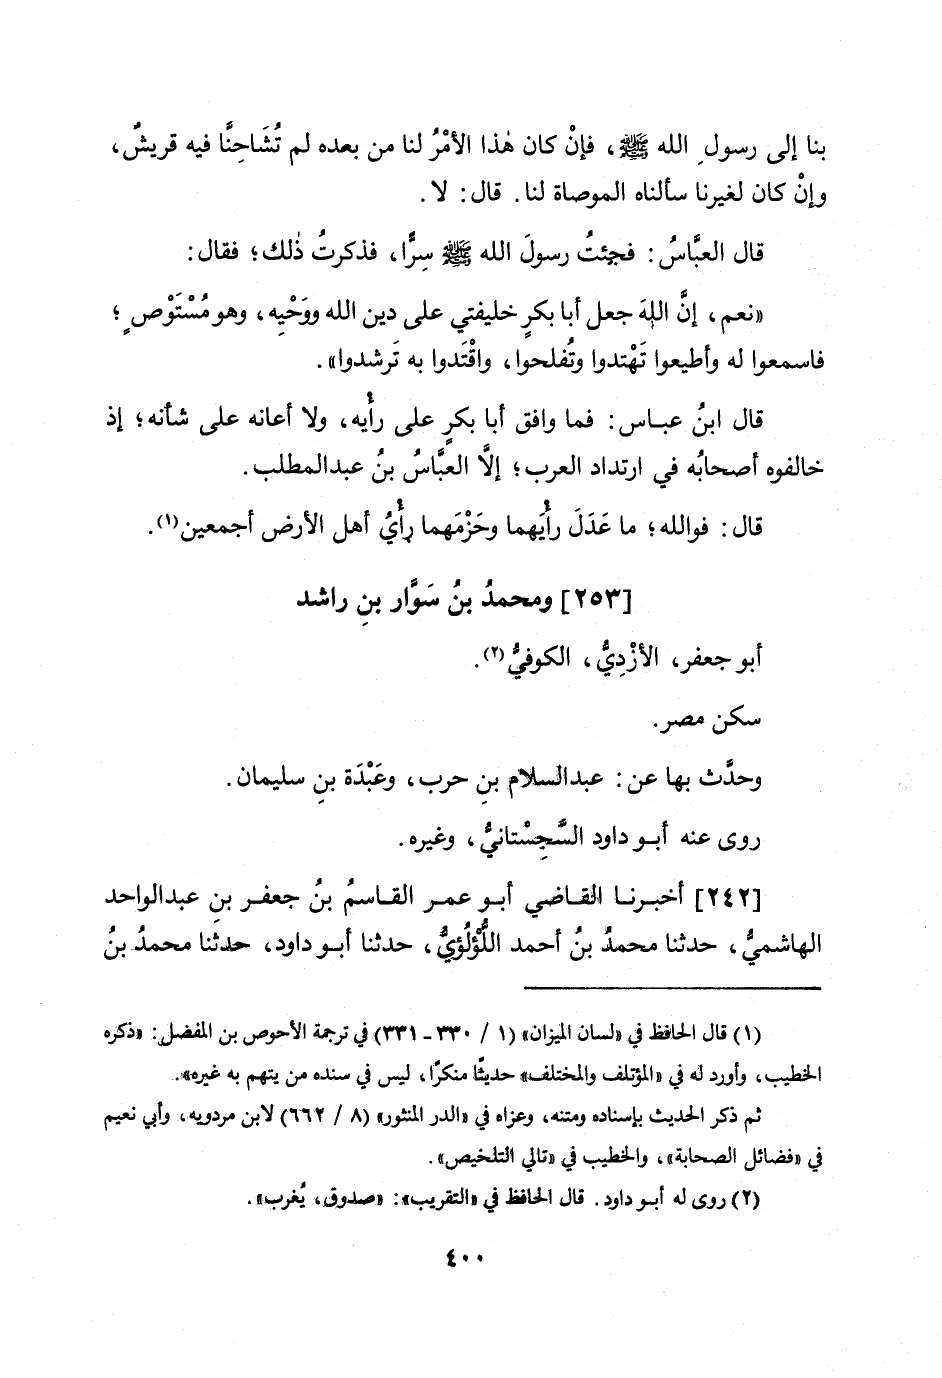 بنا إلى رسولِ الله ﷺ، فإنْ كان هٰذا الأمْرُ لنا من بعده لم تُشَاحِنَّا فيه قريشٌ،
وإنْ كان لغيرنا سألناه الموصاة لنا. قال: لا.
قال العبَّاسُ: فجئتُ رسولَ الله ﷺ سِرًّا، فذكرتُ ذٰلك؛ فقال:
«نعم، إنَّ اللهَ جعل أبا بكرٍ خليفتي على دين الله ووَحْيِه، وهو مُسْتَوْصٍ؛
فاسمعوا له وأطيعوا تَهْتدوا وتُفلحوا، واقْتَدوا به تَرشدوا».
قال ابنُ عباس: فما وافق أبا بكرٍ على رأْيِه، ولا أعانه على شأنه؛ إذ
خالفوه أصحابُه في ارتداد العرب؛ إلَّا العبَّاسُ بنُ عبدالمطلب.
قال: فوالله؛ ما عَدَلَ رأْيَهما وحَزْمَهما رأْيُ أهل الأرض أجمعين(١).
[٢٥٣] ومحمدُ بنُ سَوَّار بنِ راشد
أبو جعفر، الأزْدِيُّ، الكوفيُّ(٢).
سكن مصر.
وحدَّث بها عن: عبدالسلام بنِ حرب، وعَبْدَة بنِ سليمان.
روى عنه أبو داود السَّجِسْتانيُّ، وغيره.
[٢٤٢] أخبرنا القاضي أبو عمر القاسمُ بنُ جعفر بنِ عبدالواحد
الهاشميُّ، حدثنا محمدُ بنُ أحمد اللُّؤلُؤيُّ، حدثنا أبو داود، حدثنا محمدُ بنُ
(١) قال الحافظ في «لسان الميزان» (١ / ٣٣٠ ـ ٣٣١) في ترجمة الأحوص بن المفضل: «ذكره
الخطيب، وأورد له في «المؤتلف والمختلف» حديثًا منكرًا، ليس في سنده من يتهم به غيره».
ثم ذكر الحديث بإسناده ومتنه، وعزاه في «الدر المنثور» (٨ / ٦٦٢) لابن مردويه، وأبي نعيم
في «فضائل الصحابة»، والخطيب في «تالي التلخيص».
(٢) روى له أبو داود. قال الحافظ في «التقريب»: «صدوق، يُغرب».
٤٠٠